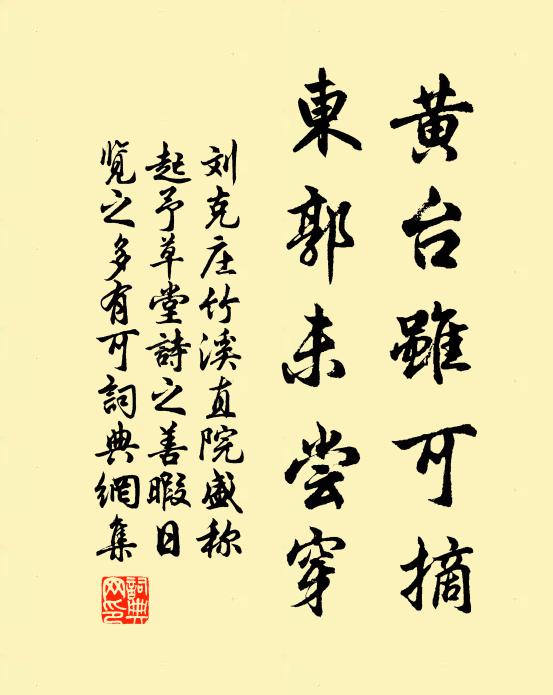 黄台雖可摘
東郭未尝穿
刘克庄竹溪直院盛称
起予草堂詩之善暇日
覧之多有可詞典網集
詞典
网印